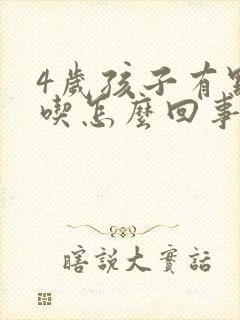 4歲孩子有
喫怎麼回事
瞎說大實話